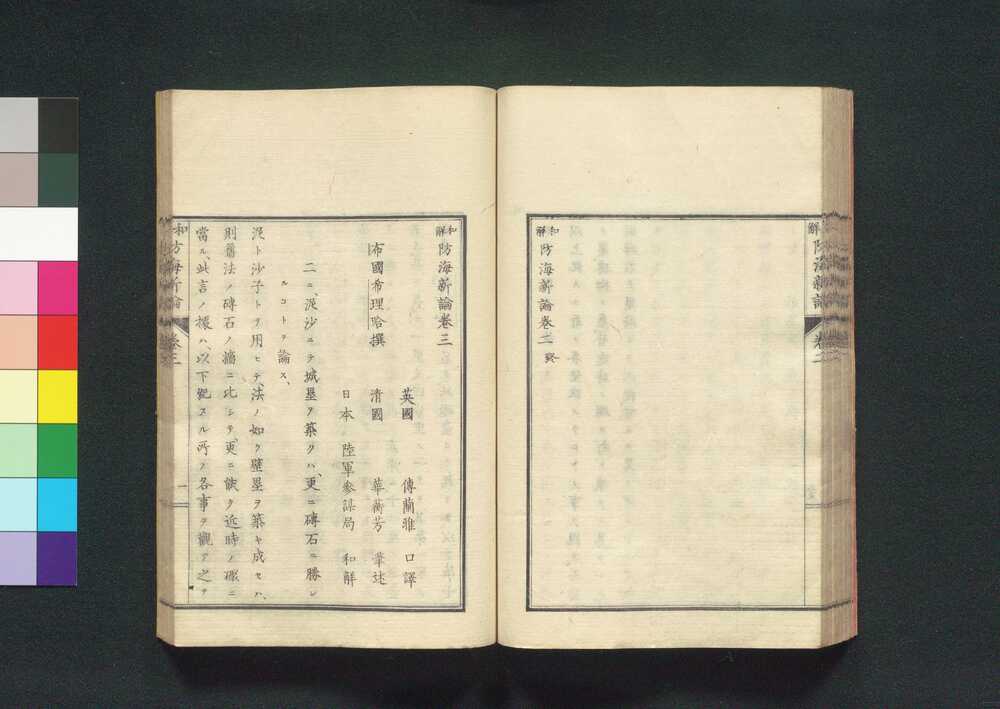 和解 防海新論卷二 終
解 防海新論 卷二
和解 防海新論卷三
英國 傅蘭雅 口譯
布國希理哈撰 清國 華蘅芳 筆述
日本 陸軍參謀局 和解
二ニ、泥沙ニテ城壘ヲ築クハ、更ニ磚石ニ勝レ
ルコトヲ論ス、
泥ト沙子トヲ用ヒテ、法ノ如ク壁壘ヲ築キ成セハ、
則舊法ノ磚石ノ墻ニ比シテ、更ニ能ク近時ノ礮ニ
當ル、此言ノ據ハ、以下記スル所ノ各事ヲ觀テ之ヲ
和 防海新論 卷三
一